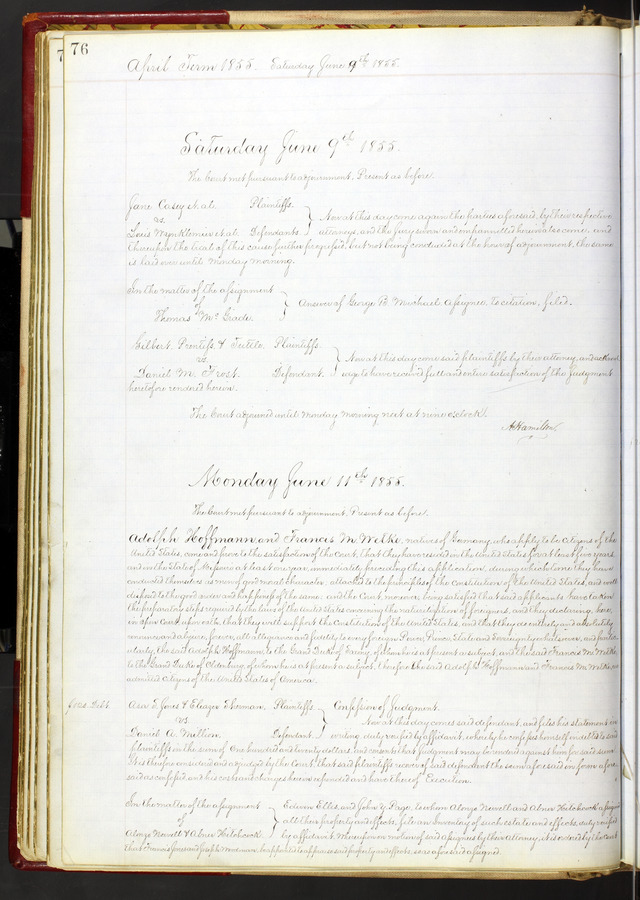 76
April Term 1855. Saturday June 9th 1855.
Saturday June 9th 1855.
The Court met pursuant to adjournment. Present as before.
Jane Casey et al. Plaintiffs.
vs.
Louis et al. Defendants.
Now at this day come again the parties aforesaid, by their respective
attorneys, and the jury sworn and empannelled herein also come, and
thereupon the trial of this cause further progressed, but not being concluded at the hour of adjournment, the same
is laid over until Monday morning.
In the matter of the assignment
of
Thomas McGrade.
Answer of George B. Michael Assignee, to citation, filed.
Gilbert, Prentiss & Tuttle. Plaintiffs.
vs.
Daniel M. Frost. Defendant.
Now at this day come said plaintiffs by their attorney, and
to have received full and entire satisfaction of the judgment
heretofore rendered herein.
The Court adjourned until Monday morning next at nine o'clock.
A. Hamilton
Monday June 11th 1855.
The Court met pursuant to adjournment. Present as before.
Adolph Hoffmann and Francis M. Welke, natives of Germany, who apply to be Citizens of the
United States, come and prove to the satisfaction of the Court, that they have resided in the United States for at least five years,
and in the State of Missouri at least one year, immediately preceding this application, during which time they have
conducted themselves as men of good moral character, attached to the principles of the Constitution of the United States, and well
disposed to the good order and happiness of the same: and the Court moreover, being satisfied that said applicants have taken
the preparatory steps required by the laws of the United States concerning the naturalization of foreigners, and they declaring, here,
in open Court, upon oath, that they will support the Constitution of the United States, and that they do entirely and absolutely
renounce and abjure, forever, all allegiance and fidelity to every foreign Power, Prince, State and Sovereignty whatsoever, and
the said Adolph Hoffmann, to the Grand Duke of of whom he is at present a subject, and the said Francis M. Welke,
to the Grand Duke of Oldenburg of whom he is at present a subject. Therefore the said Adolph Hoffmann and Francis M. Welke, are
admitted citizens of the United States of America.
fees. Debt.
Asa S. Jones & Eleazer Sherman. Plaintiffs.
vs.
Daniel A. Million. Defendant.
Confession of Judgment.
Now at this day comes said defendant, and files his statement in
writing, duly verified by affidavit, whereby he confesses himself indebted to said
plaintiffs in the sum of One hundred and twenty dollars, and consents that judgment may be rendered against him for said sum.
It is therefore considered and adjudged by the Court, that said plaintiffs recover of said defendant the sum aforesaid in form afore-
said as confessed, and his costs and charges herein expended and have thereof Execution.
In the matter of the assignment
of
Alonzo Newell & Abner Hitchcock.
Edwin Ellis, and John Y. Page, to whom Alonzo Newell and Abner Hitchcock assigned
all their property and effects, file an Inventory of such estate and effects, duly verified
by affidavit. Whereupon on motion of said assignees by their attorney, it is ordered by the Court
that Francis and Joseph be appointed to appraise said property and effects, so as aforesaid assigned.